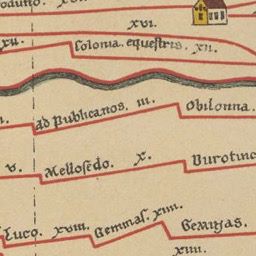 xvi.
xii. Colonia. equestris. xii.
ad Publicanos. iii. Obilonna.
v. Mellosedo. x. Durotinc
Luco. xviii. Gemmas. xiiii. Gemiņas.
xiiii.